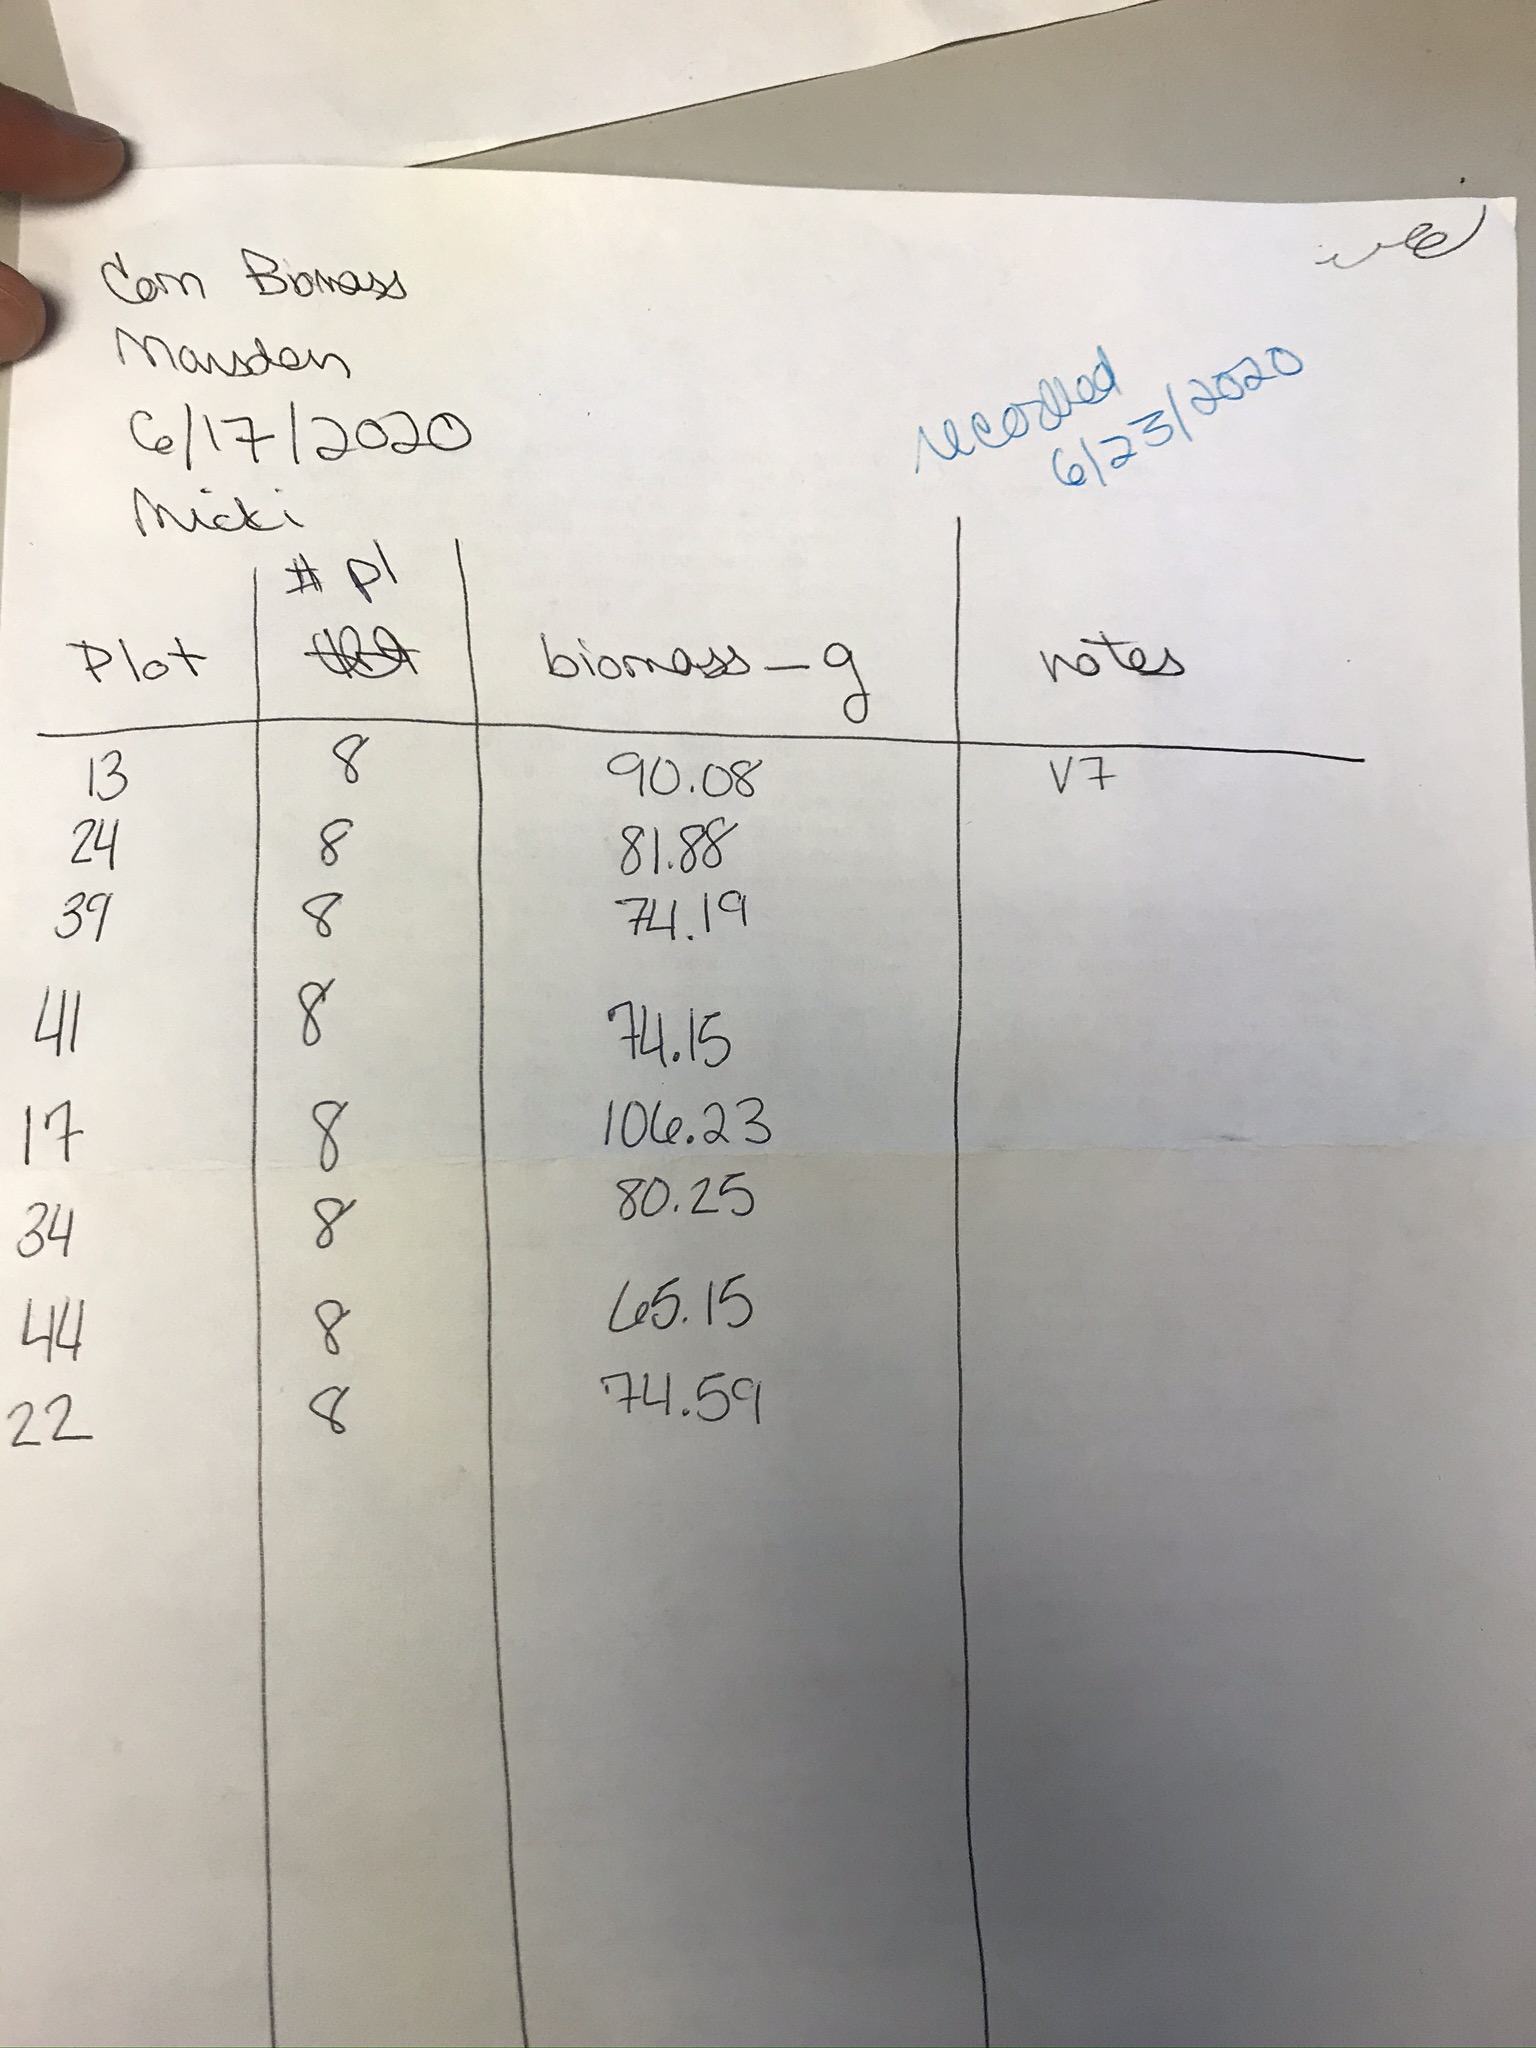 Corn Biomass
Marsden
6/17/2020
Micki
recorded
6/23/2020
# pl
Plot biomass - g notes
13 8 90.08 V7
24 8 81.88
39 8 74.19
41 8 74.15
17 8 106.23
34 8 80.25
44 8 65.15
22 8 74.59